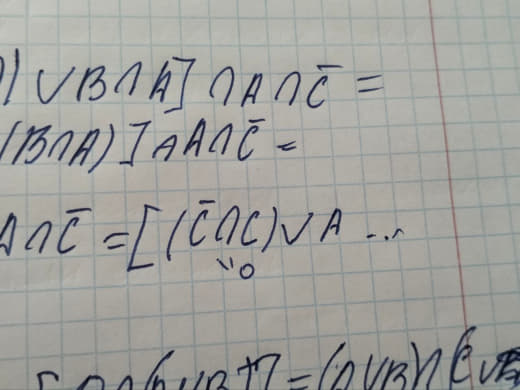 ) ∨ B ∩ A] ∩ A ∩ C̄ =
(B ∩ A)] ∩ A ∩ C̄ =
A ∩ C̄ = [(C̄ ∩ C) ∨ A ...
0
= (∩ ∨ B) ∩